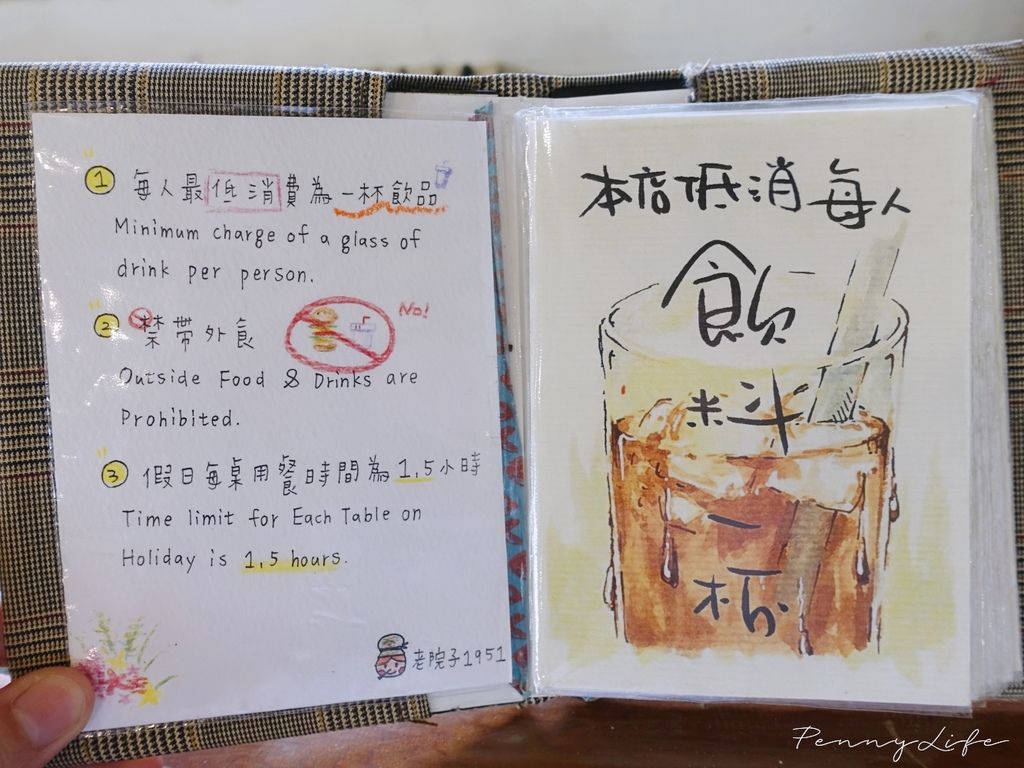 1 每人最低消費為一杯飲品
Minimum charge of a glass of
drink per person.
2 禁帶外食
No!
Outside Food & Drinks are
Prohibited.
3 假日每桌用餐時間為 1.5小時
Time limit for Each Table on
Holiday is 1.5 hours.
老院子1951
本店低消每人
飲
料
一
杯
PennyLife